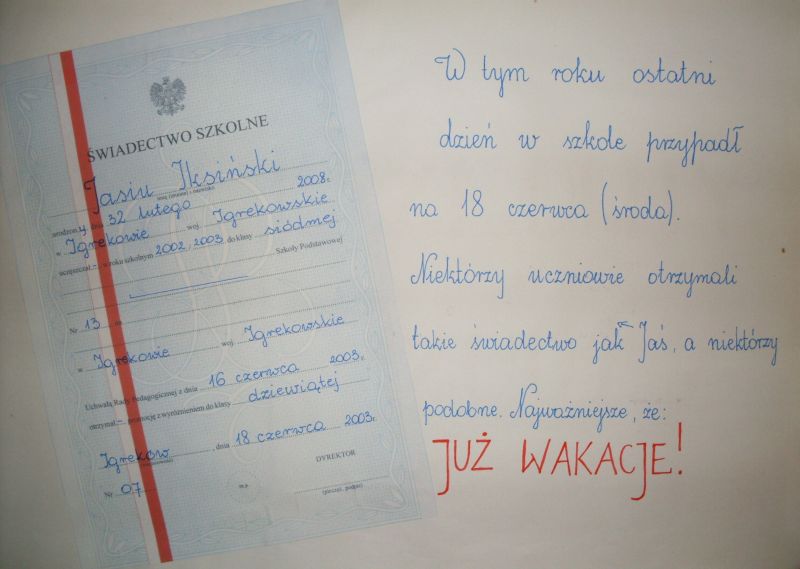 ŚWIADECTWO SZKOLNE
Jasiu Iksiński
imię (imiona) i nazwisko
urodzony dnia 32 lutego 2008 r.
w Igrekowie woj. Igrekowskie
uczęszczał - w roku szkolnym 2002/2003 do klasy siódmej
Szkoły Podstawowej
Nr 13 im.
w Igrekowie woj. Igrekowskie
Uchwałą Rady Pedagogicznej z dnia 16 czerwca 2003 r.
otrzymał - promocję z wyróżnieniem do klasy dziewiątej
Igreków, dnia 18 czerwca 2003 r.
Nr 07
m.p.
DYREKTOR
(pieczęć, podpis)
W tym roku ostatni
dzień w szkole przypadł
na 18 czerwca (środa).
Niektórzy uczniowie otrzymali
takie świadectwo jak Jaś, a niektórzy
podobne. Najważniejsze, że:
JUŻ WAKACJE!